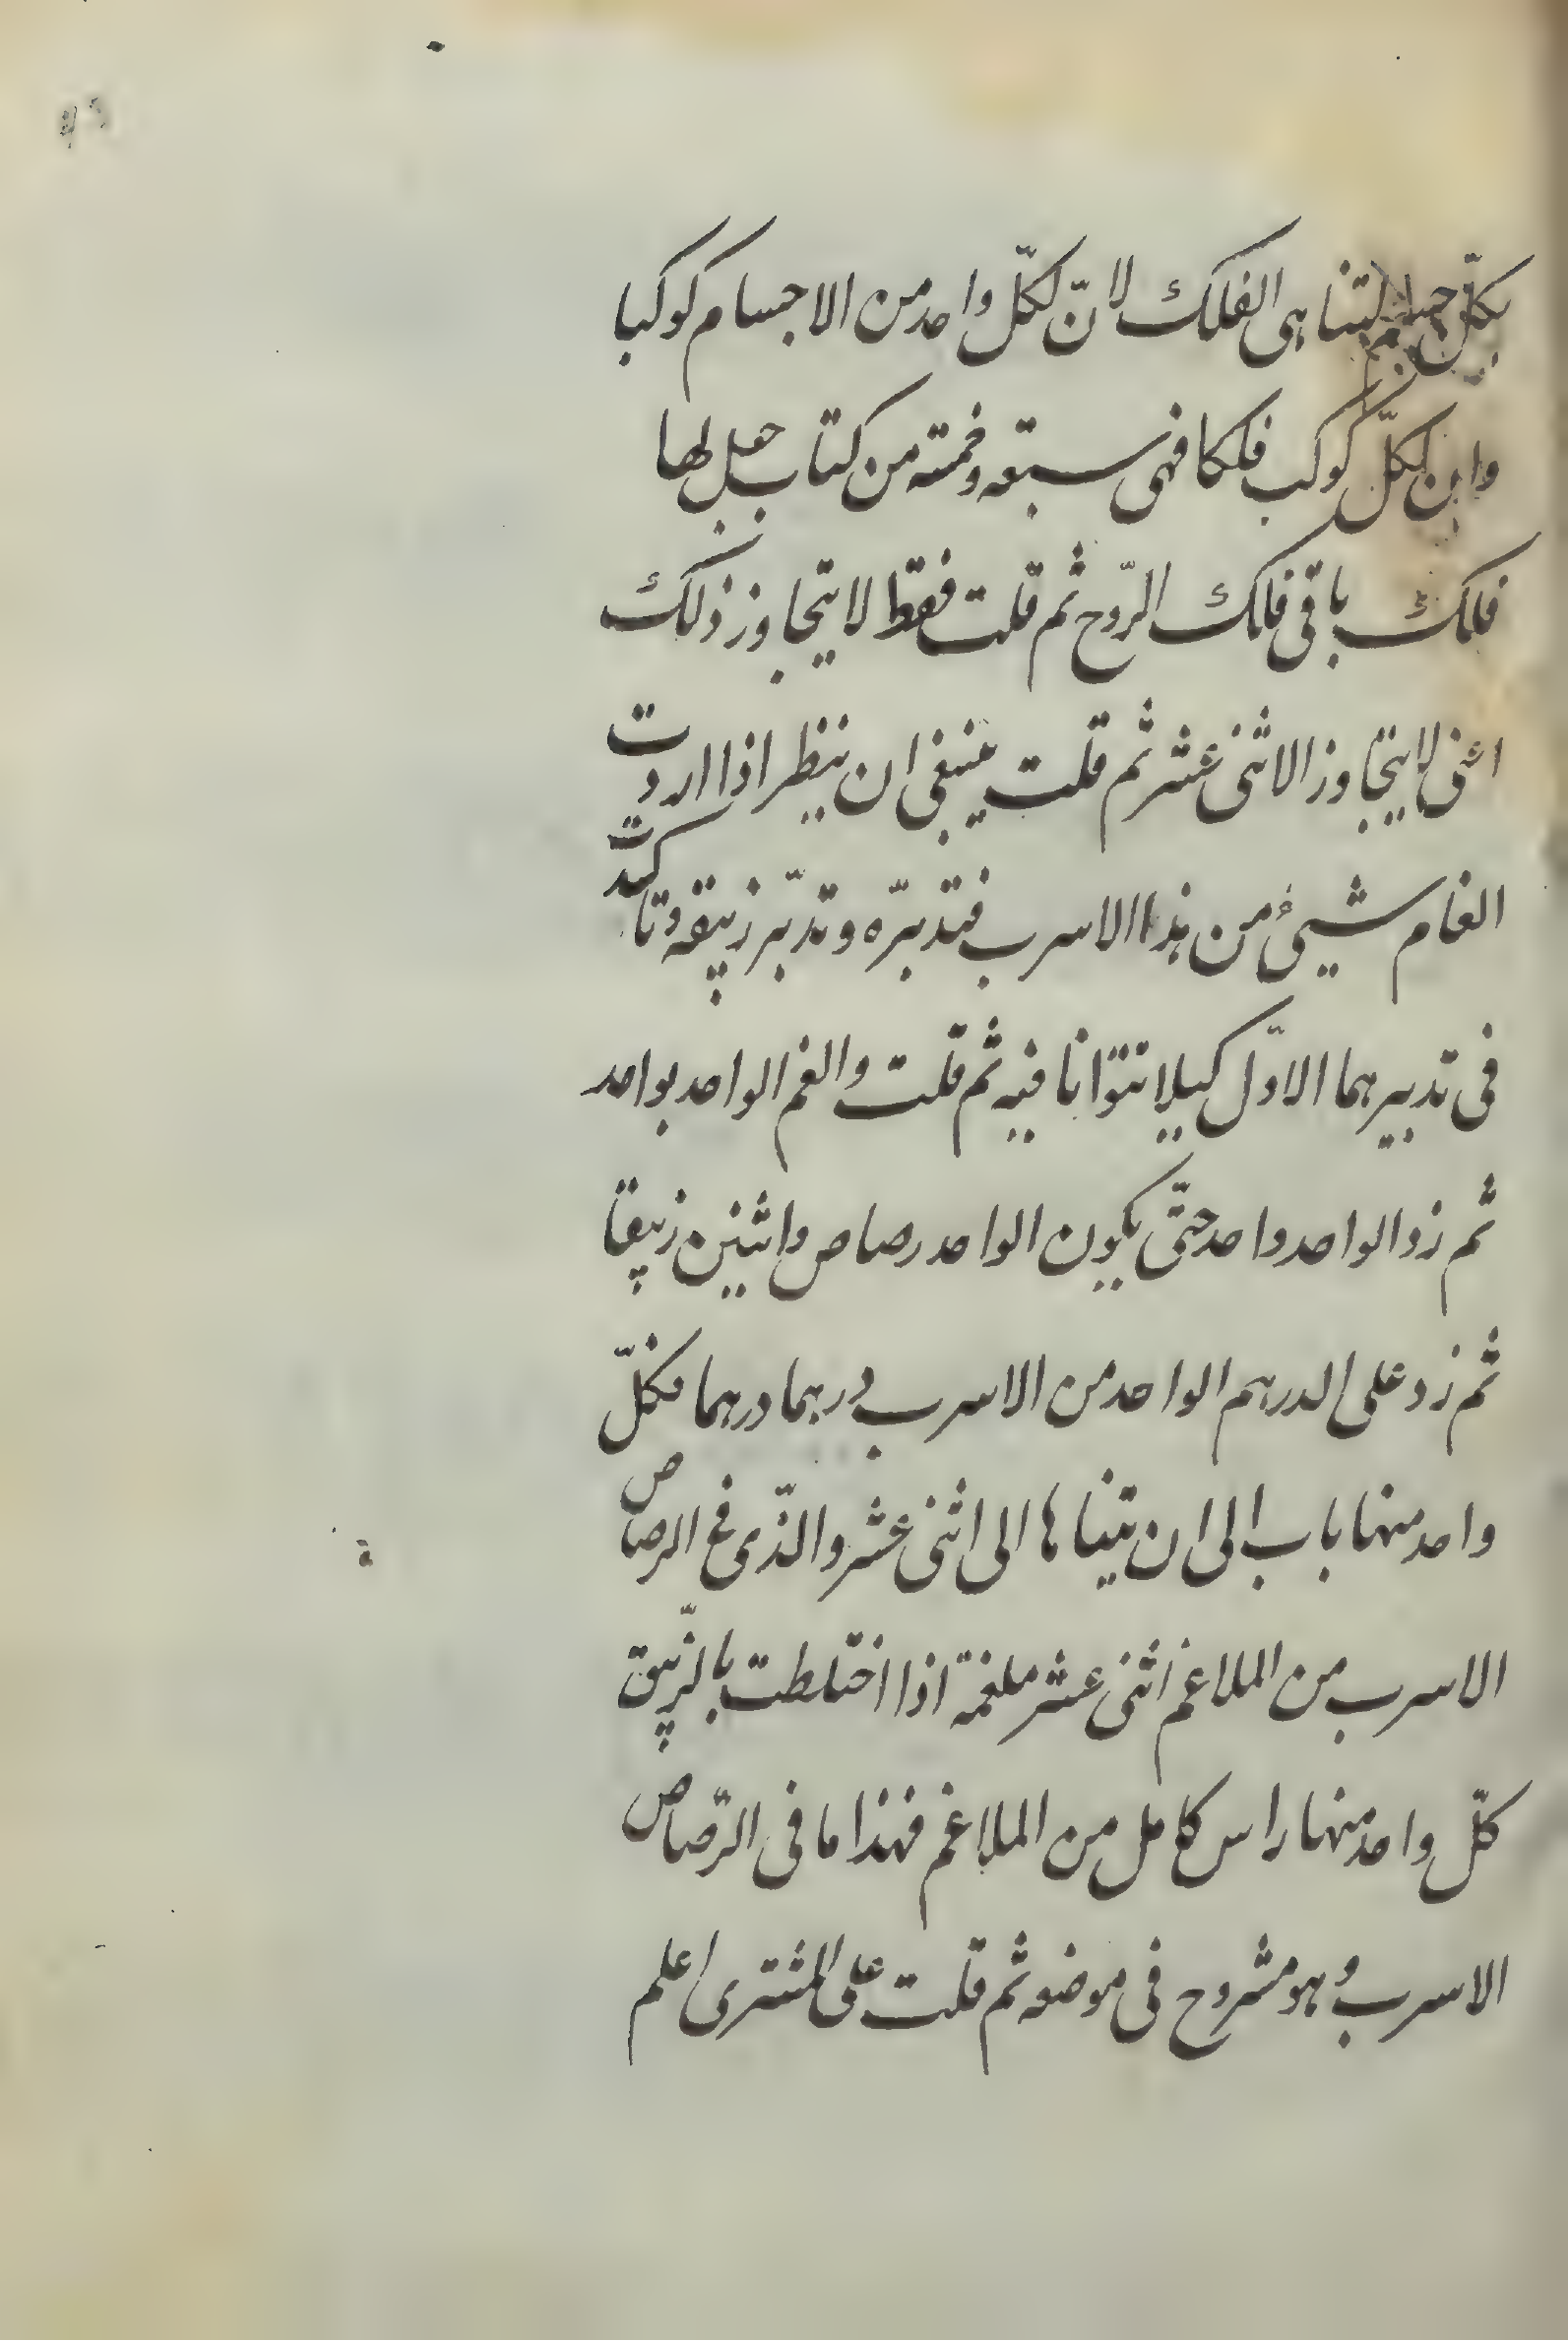 بكلّ لتناهى الفلك لانّ لكلّ واحد من الاجسام كوكبا
وان لكلّ كوكب فلكا فهى سبعه وخمسة من كتاب جعل لها
فلك باقى فلك الرّوح ثم قلت فقط لا يتجاوز ذلك
اعنى لا يتجاوز الاثنى عشر ثم قلت ينبغى ان ينظر اذا اردت
الغام شيىء من هذا الاسرب فتدبّره وتدبّر زيبقه وتاكيد
فى تدبيرهما الاوّل كيلا تتوانا فيه ثم قلت والغم الواحد بواحد
ثم زد الواحد واحد حتّى يكون الواحد رصاص واثنين زيبقا
ثم زد على الدرهم الواحد من الاسرب درهما درهما فكلّ
واحد منها باب الى ان يتناها الى اثنى عشر والذّى فى الرصاص
الاسرب من الملاغم اثنى عشر ملغمة اذا اختلطت بالزّيبق
كلّ واحد منها راس كامل من الملاغم فهذا ما فى الرّصاص
الاسرب وهو مشروح فى موضعه ثم قلت على المشترى اعلم